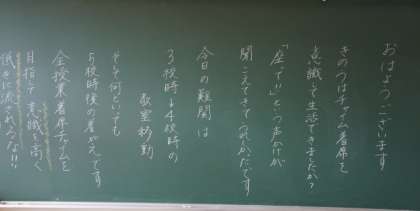 おはようございます
きのうはチャイム着席を
意識して生活できましたか?
「座で!!」という声かけが
聞こえてきてうれしかったです
今日の難関は
3校時→4校時の
教室移動
そして何といっても
5校時後の着がえです
全授業着席チャイムを
目指して意識を高く
低きに流されるな!!